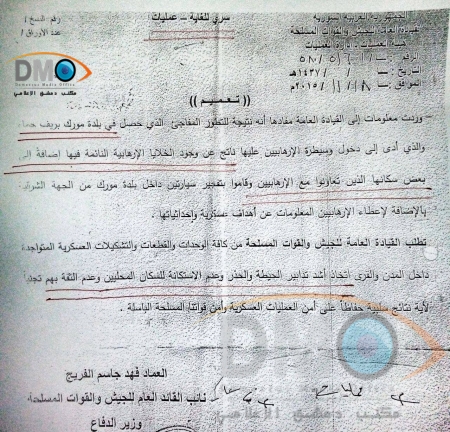 سري للغاية - عمليات
رقم النسخ /
عدد الأوراق /
الجمهورية العربية السورية
القيادة العامة للجيش والقوات المسلحة
هيئة العمليات - إدارة العمليات
الموافق ٢٠١٥/١١/٨م
DMO
Damascus Media Office
مكتب دمشق الإعلامي
(( تعميم ))
- وردت معلومات إلى القيادة العامة مفادها أنه نتيجة للتطور المفاجئ الذي حصل في بلدة مورك بريف حماة
والذي أدى إلى دخول وسيطرة الإرهابيين عليها ناتج عن وجود الخلايا الإرهابية النائمة فيها إضافة إلى
بعض سكانها الذين تعاونوا مع الإرهابيين وقاموا بتفجير سيارتين داخل بلدة مورك من الجهة الشرقية
بالإضافة لإعطاء الإرهابيين المعلومات عن أهداف عسكرية وإحداثياتها .
تطلب القيادة العامة للجيش والقوات المسلحة من كافة الوحدات والقطعات والتشكيلات العسكرية المتواجدة
داخل المدن والقرى اتخاذ أشد تدابير الحيطة والحذر وعدم الاستكانة للسكان المحليين وعدم الثقة بهم تجنباً
لأية نتائج سلبية حفاظاً على أمن العمليات العسكرية وأمن قواتنا المسلحة الباسلة .
DMO
مكتب دمشق الإعلامي
العماد فهد جاسم الفريج
نائب القائد العام للجيش والقوات المسلحة
وزير الدفاع